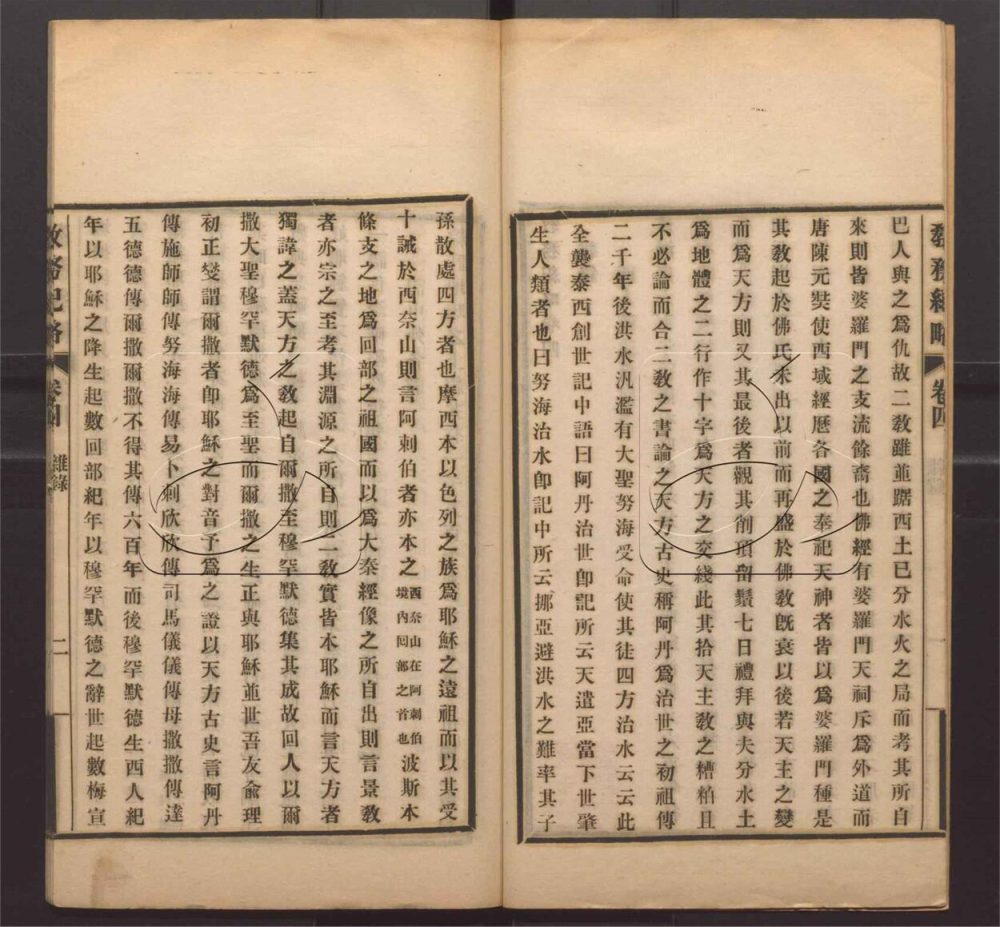 教務紀略
卷四
巴人與之爲仇故二敎雖並踞西土已分水火之局而考其所自
來則皆婆羅門之支流餘裔也佛經有婆羅門天祠斥爲外道而
唐陳元奘使西域經歷各國之奉祀天神者皆以爲婆羅門種是
其敎起於佛氏未出以前而再盛於佛敎旣衰以後若天主之變
而爲天方則又其最後者觀其削頂留鬚七日禮拜與夫分水土
爲地體之二行作十字爲天方之交綫此其拾天主敎之糟粕且
不必論而合二敎之書論之天方古史稱阿丹爲治世之初祖傳
二千年後洪水汎濫有大聖努海受命使其徒四方治水云云此
全襲泰西創世記中語曰阿丹治世卽記所云天遣亞當下世肇
生人類者也曰努海治水卽記中所云挪亞避洪水之難率其子
孫散處四方者也摩西本以色列之族爲耶穌之遠祖而以其受
十誡於西奈山則言阿剌伯者亦本之西奈山在阿剌伯境內回部之首也波斯本
條支之地爲回部之祖國而以爲大秦經像之所自出則言景敎
者亦宗之至考其淵源之所自則二敎實皆本耶穌而言天方者
獨諱之蓋天方之敎起自爾撒至穆罕默德集其成故回人以爾
撒大聖穆罕默德爲至聖而爾撒之生正與耶穌並世吾友兪理
初正燮謂爾撒者卽耶穌之對音予爲之一證以天方古史言阿丹
傳施師師傳努海海傳易卜剌欣欣傳司馬儀儀傳母撒撒傳達
五德德傳爾撒爾撒不得其傳六百年而後穆罕默德生西人紀
年以耶穌之降生起數回部紀年以穆罕默德之辭世起數梅宣
教務紀略
卷四
雜錄
二